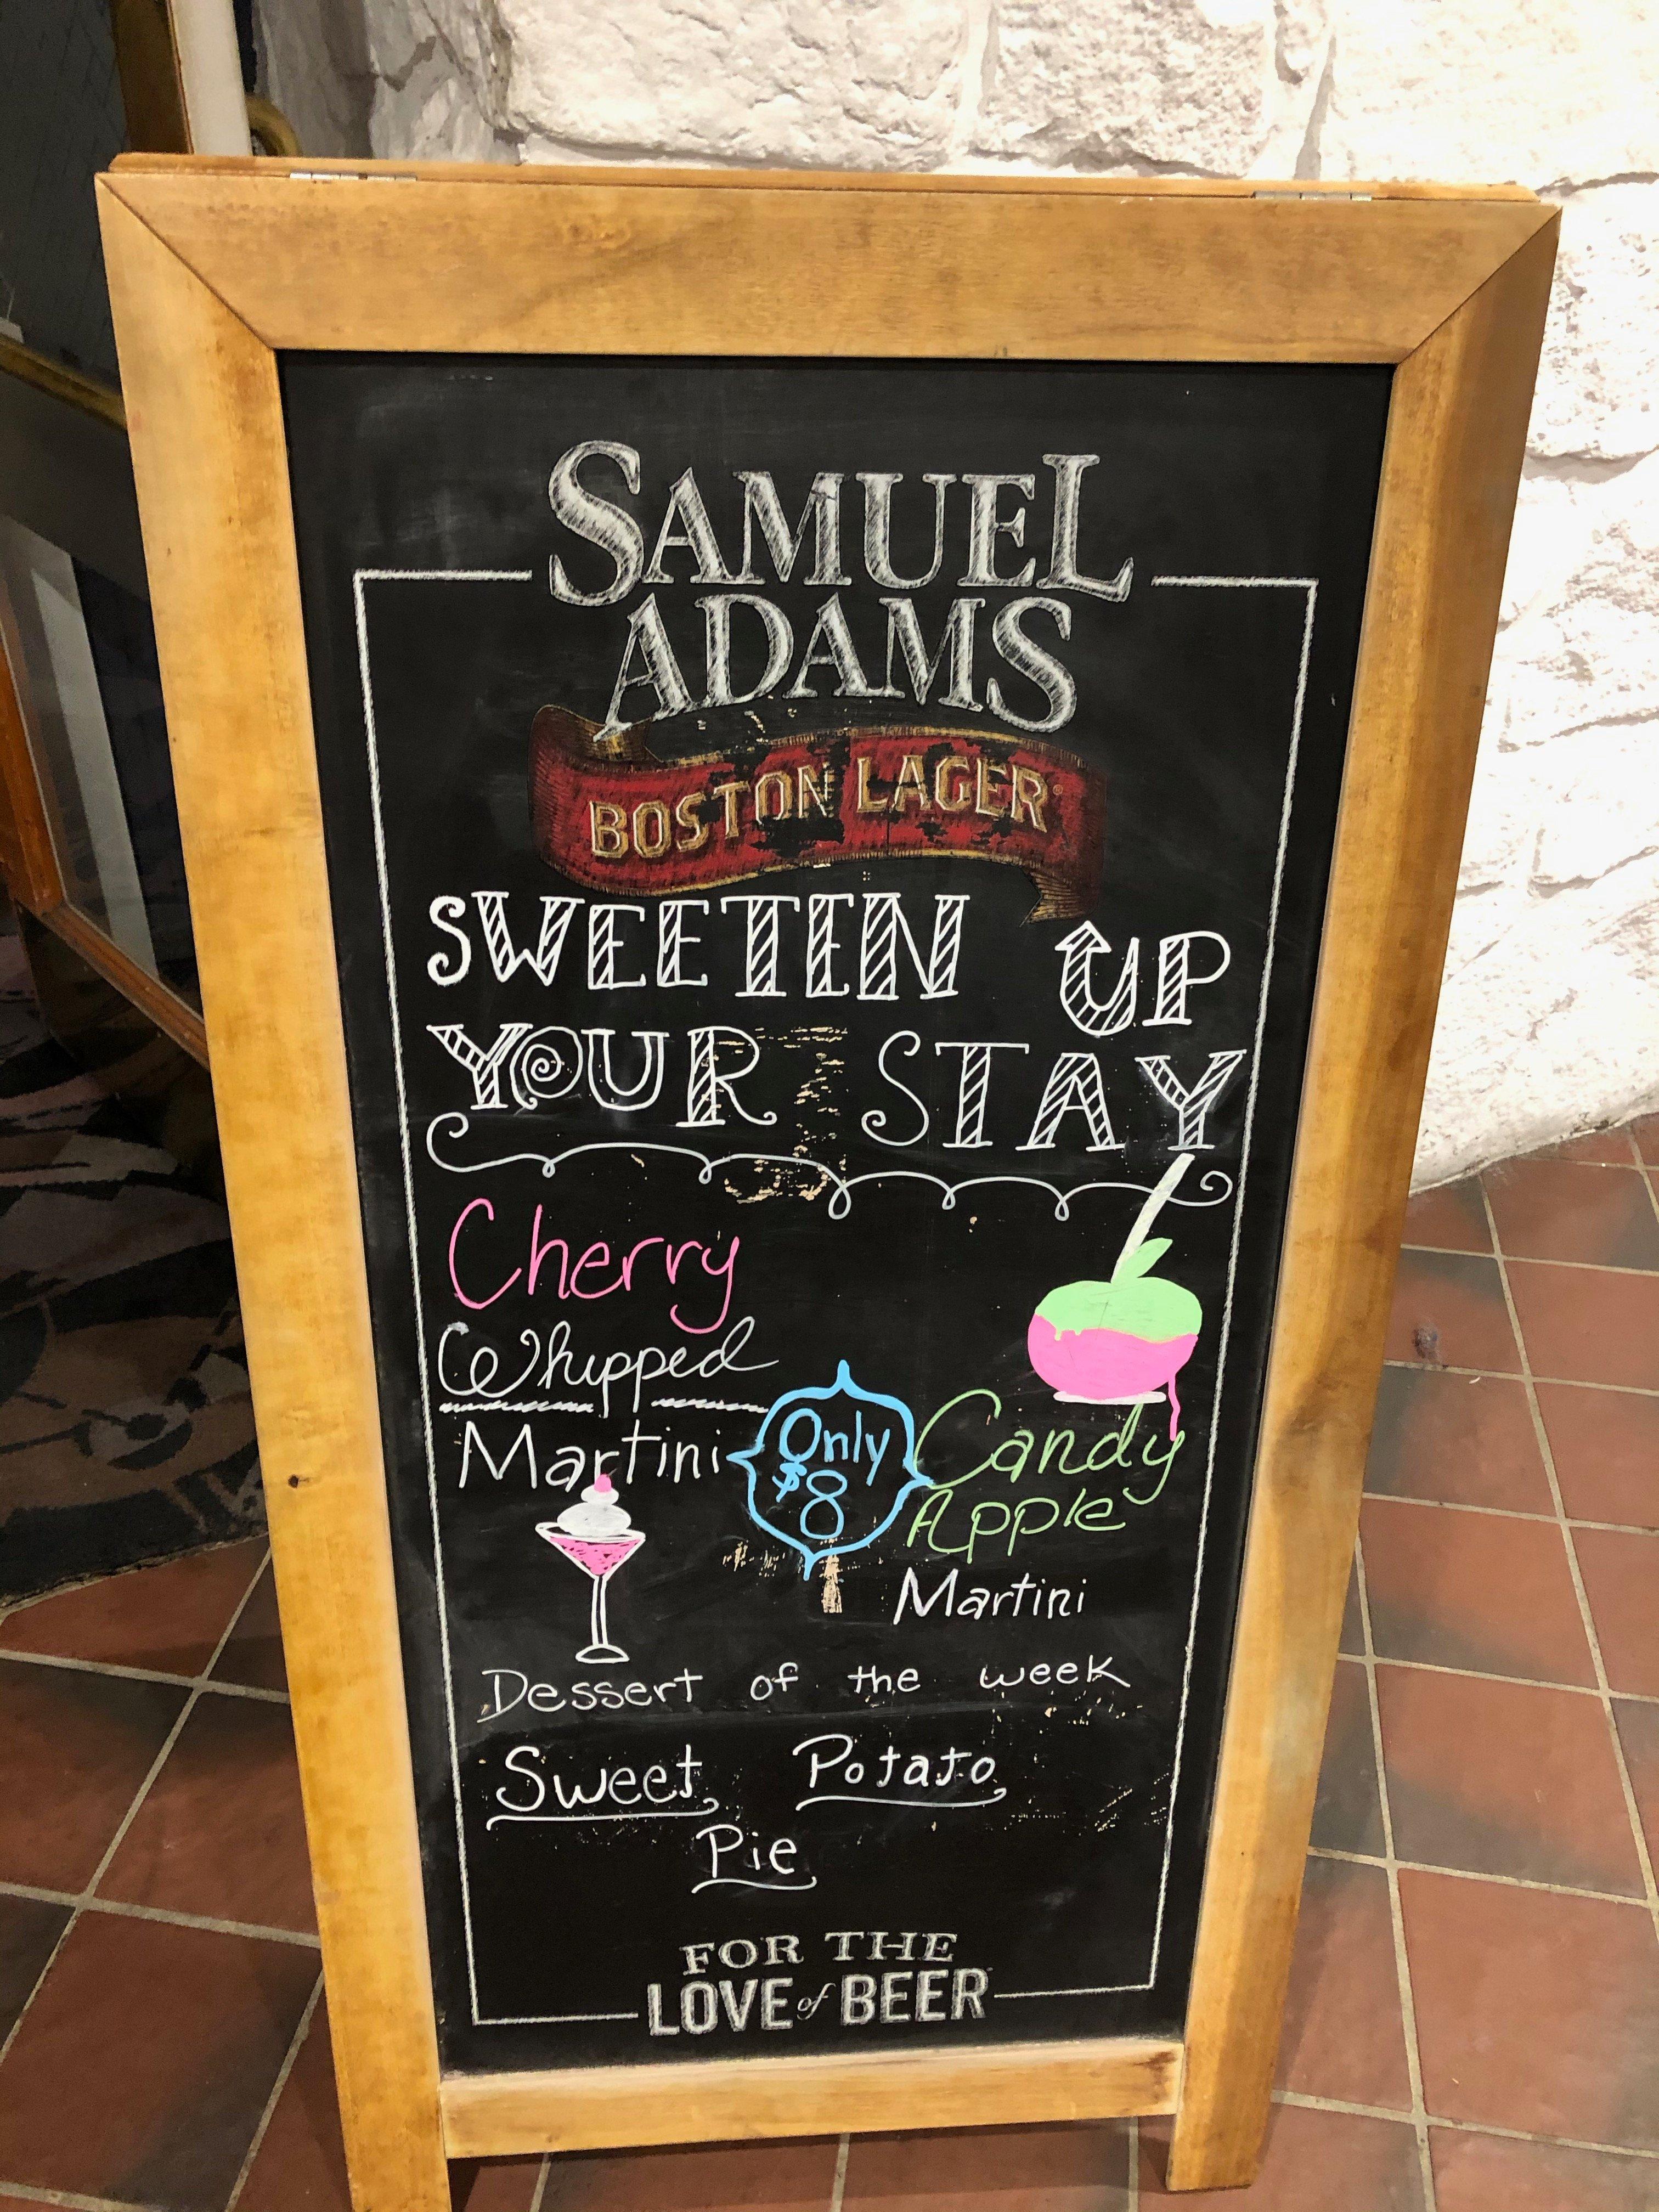 SAMUEL
ADAMS
BOSTON LAGER
SWEETEN UP
YOUR STAY
Cherry
Whipped
Martini
Only
$8
Candy
Apple
Martini
Dessert of the week
Sweet Potato
Pie
FOR THE
LOVE of BEER